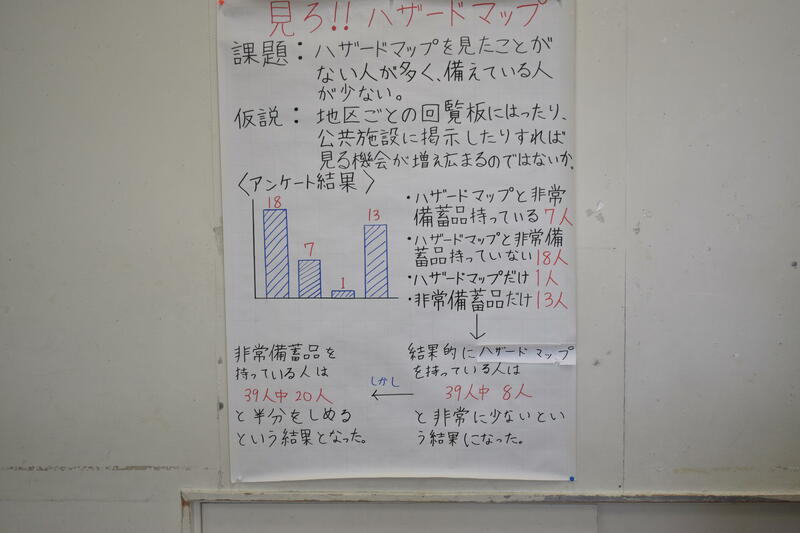 見ろ!! ハザードマップ
課題：ハザードマップを見たことが
ない人が多く、備えている人
が少ない。
仮説：地区ごとの回覧板にはったり、
公共施設に掲示したりすれば
見る機会が増え広まるのではないか。
〈アンケート結果〉
18
7
1
13
・ハザードマップと非常
備蓄品持っている7人
・ハザードマップと非常備
蓄品持っていない18人
・ハザードマップだけ 1人
・非常備蓄品だけ 13人
↓
結果的にハザードマップ
を持っている人は
39人中 8人
と非常に少ないとい
う結果になった。
しかし
←
非常備蓄品を
持っている人は
39人中 20人
と半分をしめる
という結果となった。